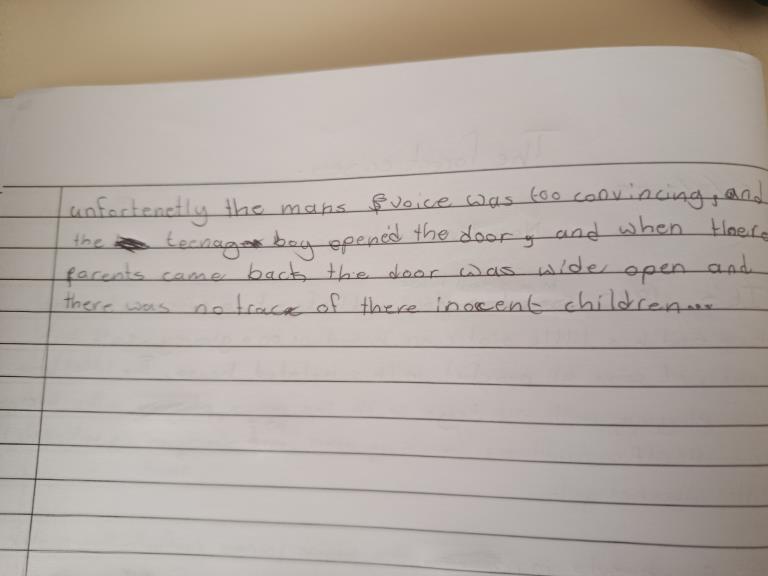 unfortenetly the mans voice was too convincing, and
the teenage boy opened the door, and when there
parents came back the door was wide open and
there was no trace of there inocent children...